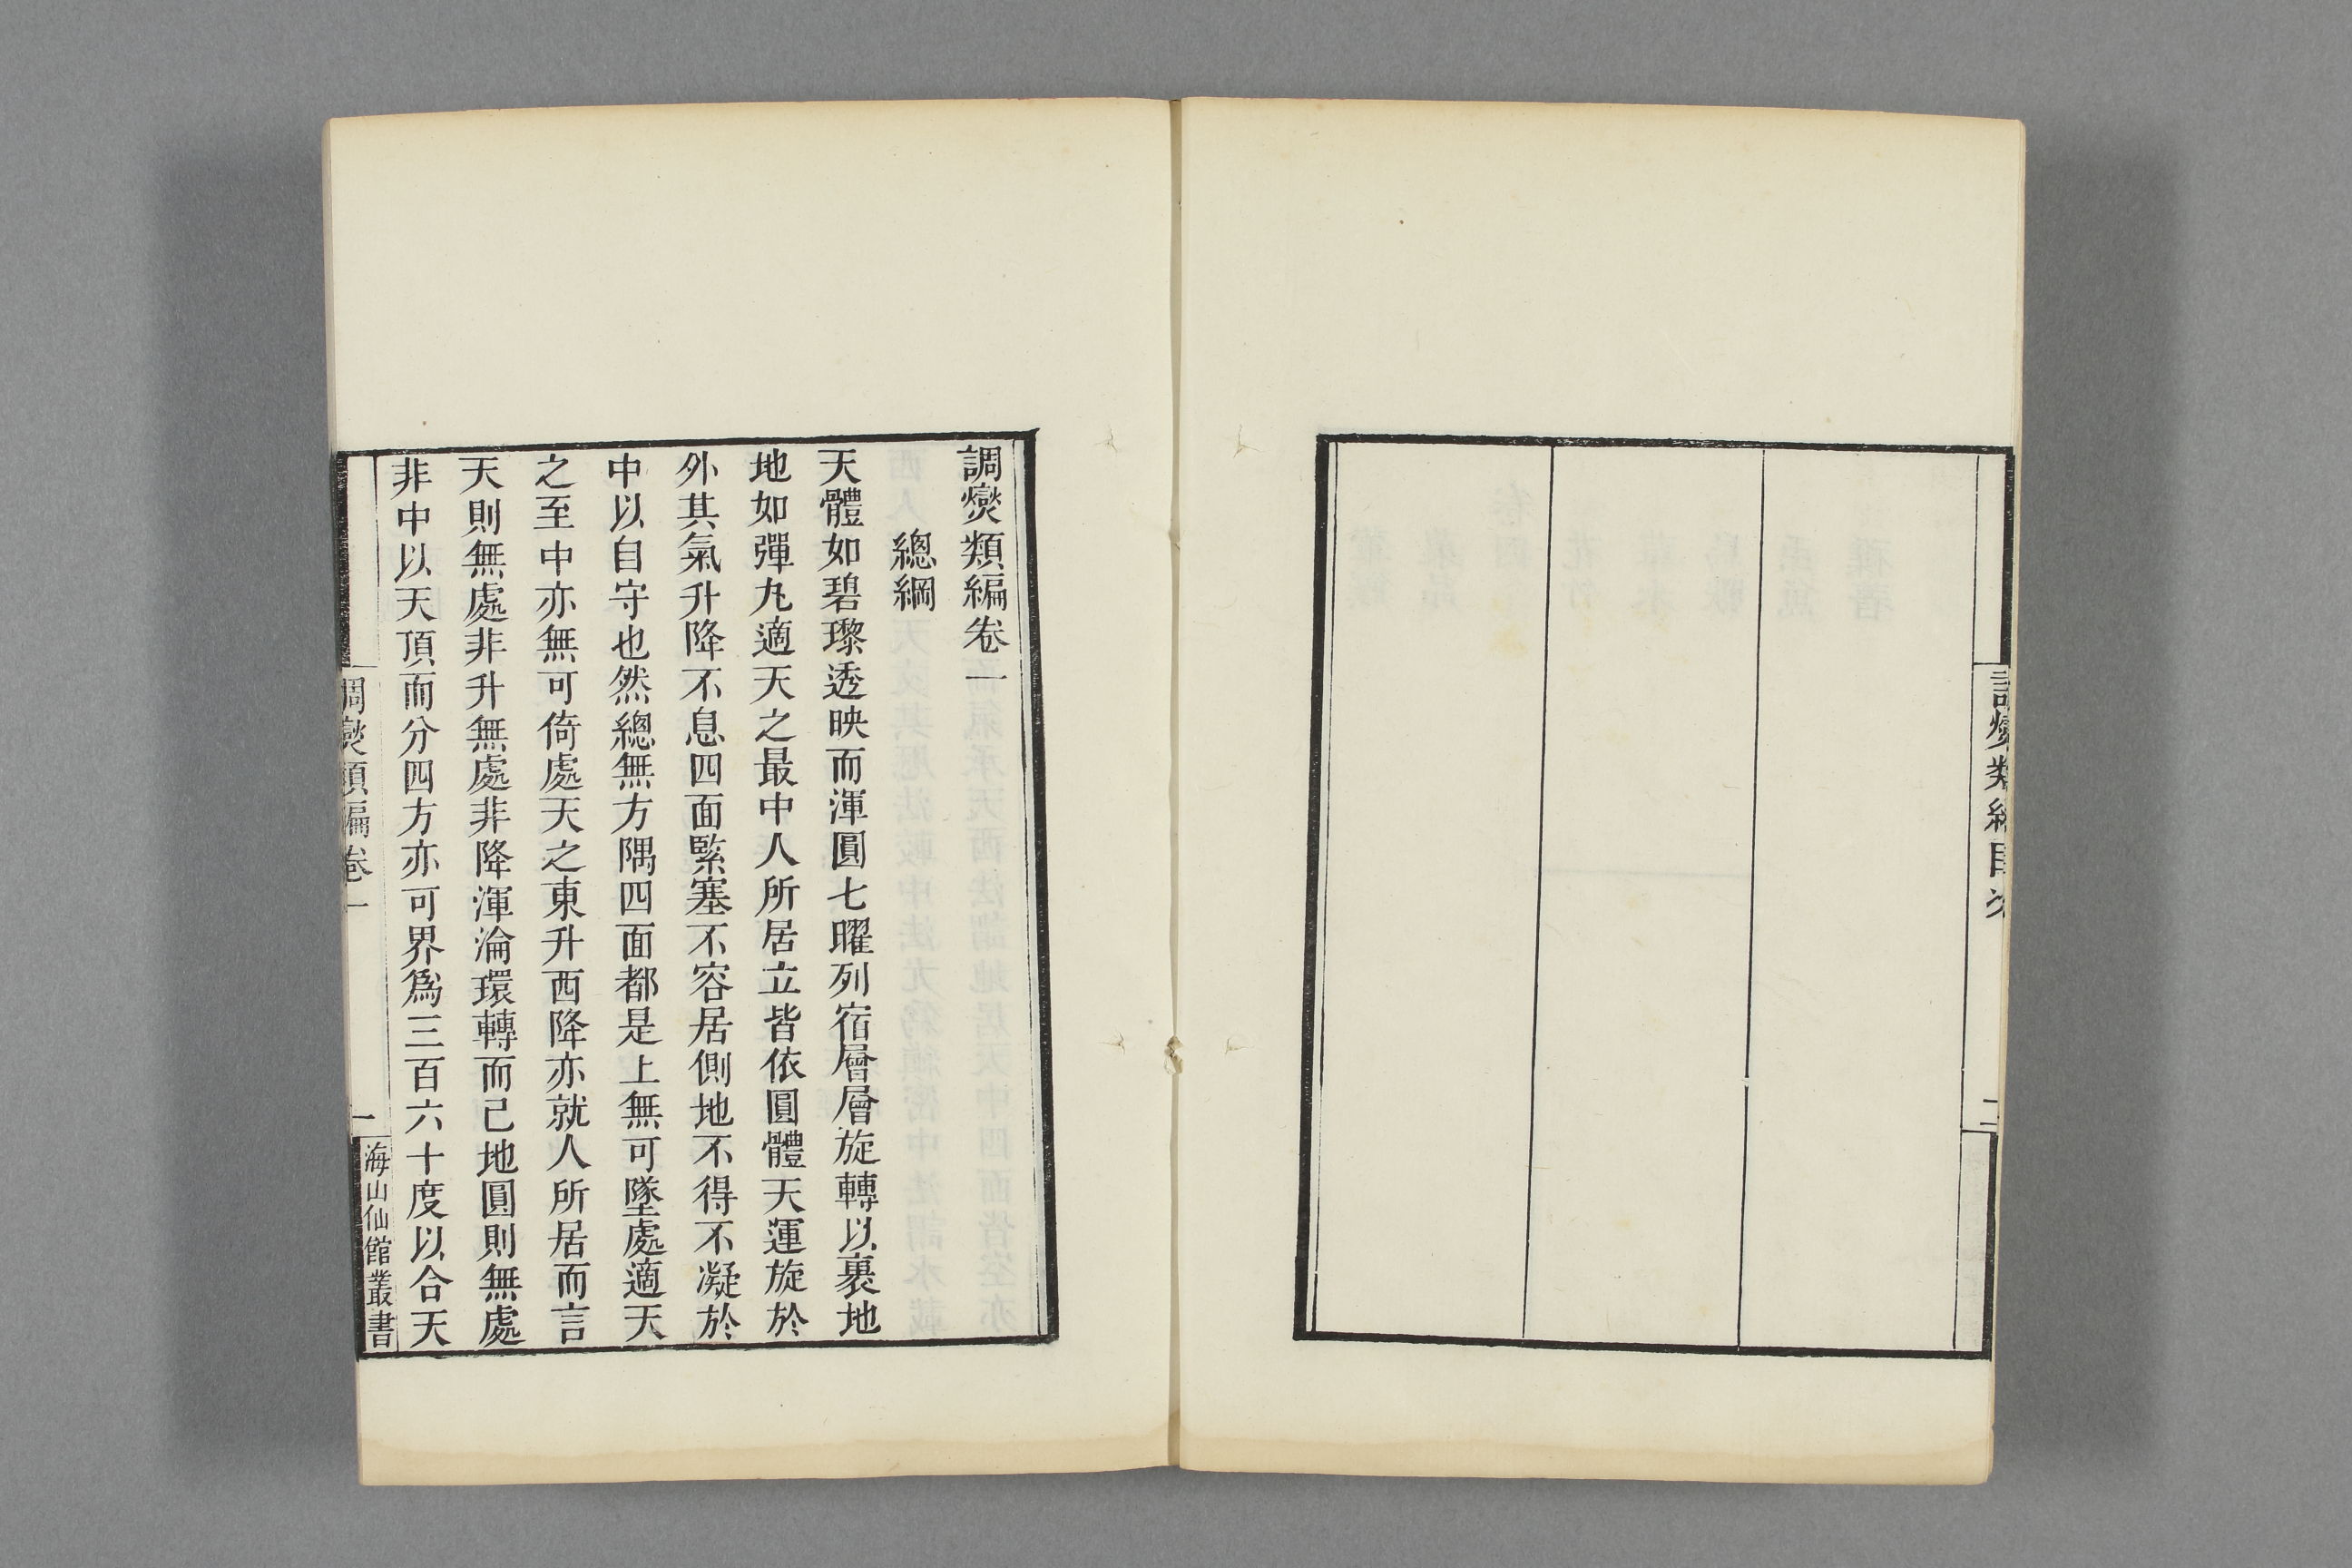 調燮類編目次
二
調燮類編卷一
總綱
天體如碧瓈透映而渾圓七曜列宿層層旋轉以裹地
地如彈丸適天之最中人所居立皆依圓體天運旋於
外其氣升降不息四面緊塞不容居側地不得不凝於
中以自守也然總無方隅四面都是上無可墜處適天
之至中亦無可倚處天之東升西降亦就人所居而言
天則無處非升無處非降渾淪環轉而已地圓則無處
非中以天頂而分四方亦可界爲三百六十度以合天
調燮類編卷一
一
海山仙館叢書